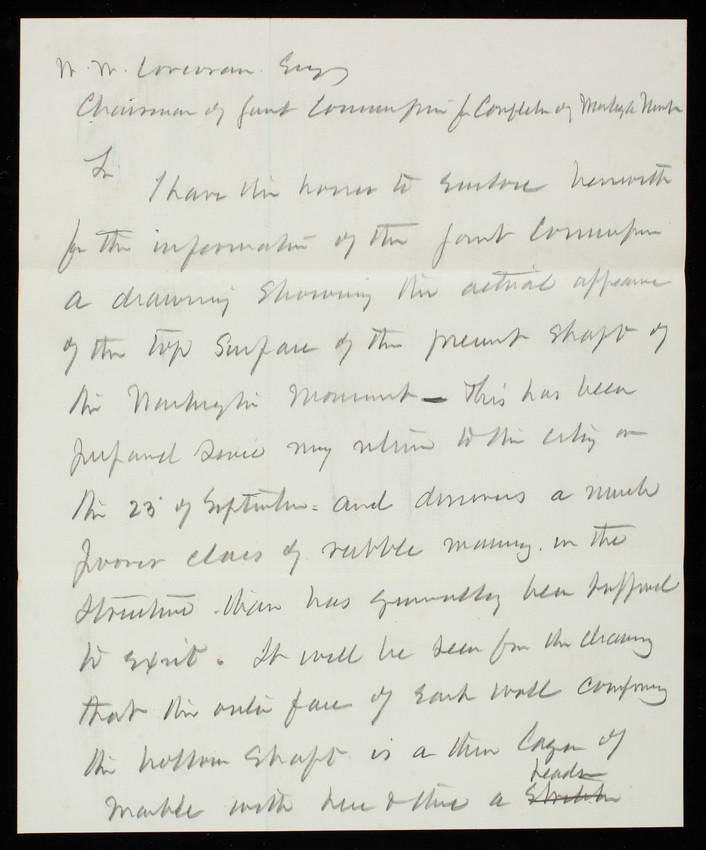 W. W. Corcoran. Esq
Chairman of Joint Commission for Completion of Washington Monument
Sir
I have the honor to enclose herewith
for the information of the Joint Commission
a drawing showing the actual appearance
of the top surface of the present shaft of
the Washington Monument — This has been
prepared since my return to the city on
the 23 of September. and discovers a much
poorer class of rubble masonry. in the
structure than has generally been supposed
to exist. It will be seen from the drawing
that the outer face of each wall composing
the hollow shaft is a thin layer of
marble with here & there a header